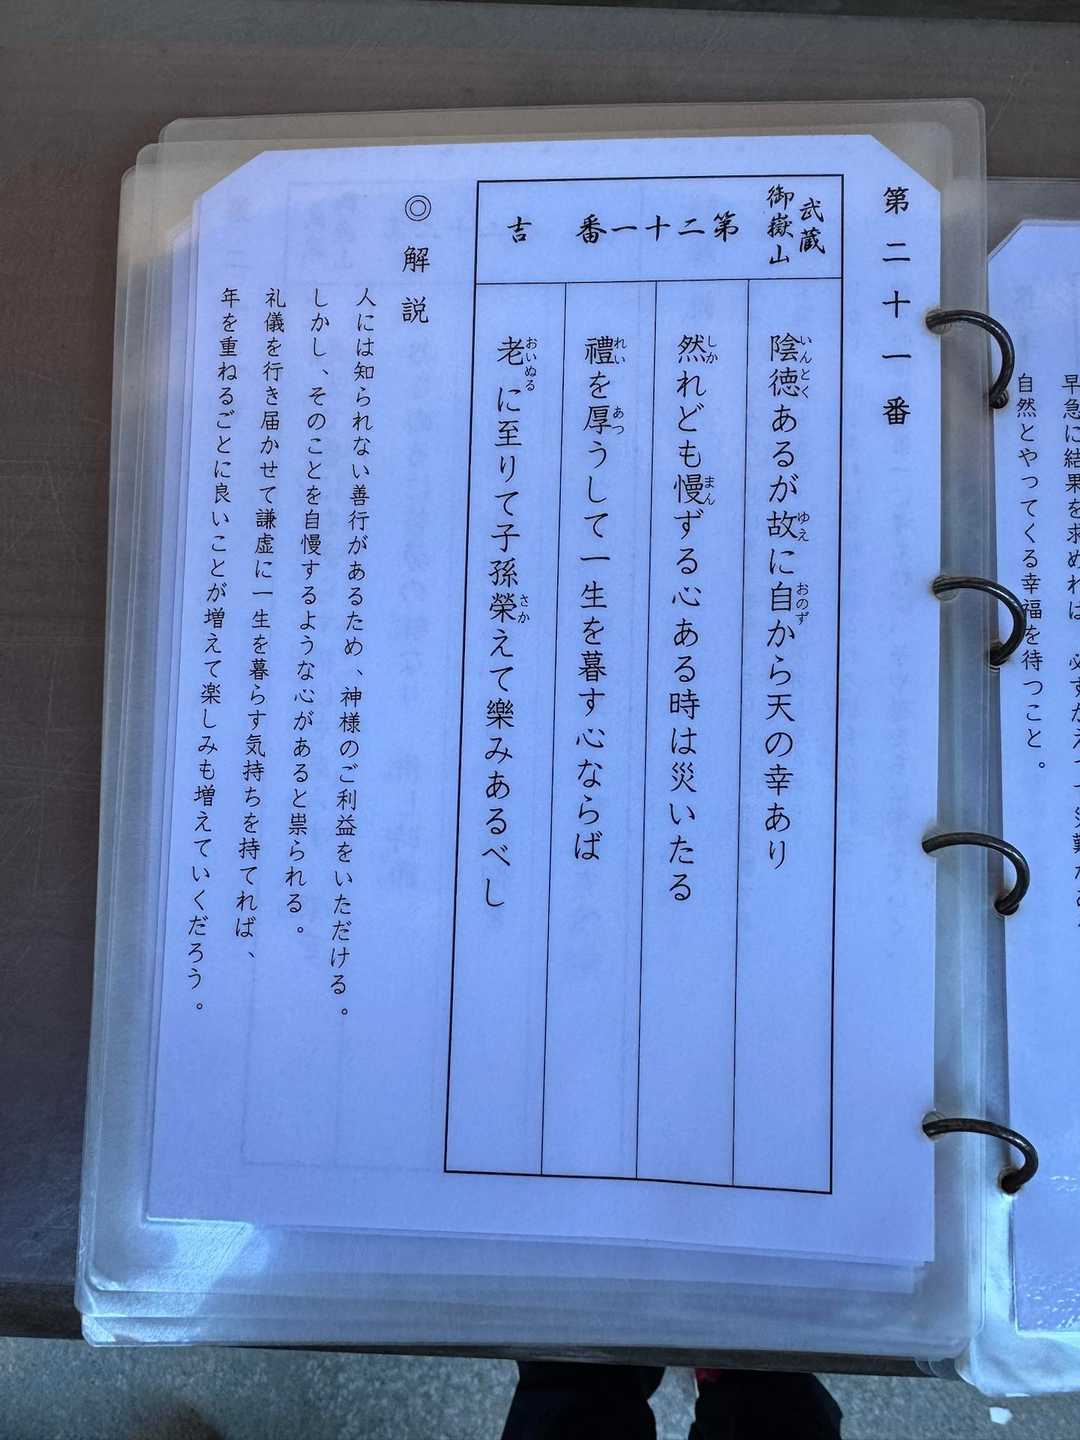 第二十一番
武蔵
御嶽山
第二十一番 吉
陰徳あるが故に自から天の幸あり
いんとく ゆえ おのず
然れども慢ずる心ある時は災いたる
しか まん
禮を厚うして一生を暮す心ならば
れい あつ
老に至りて子孫榮えて樂みあるべし
おいぬる さか
◎解説
人には知られない善行があるため、神様のご利益をいただける。
しかし、そのことを自慢するような心があると祟られる。
礼儀を行き届かせて謙虚に一生を暮らす気持ちを持てれば、
年を重ねるごとに良いことが増えて楽しみも増えていくだろう。
早急に結果を求めれば
自然とやってくる幸福を待つこと。